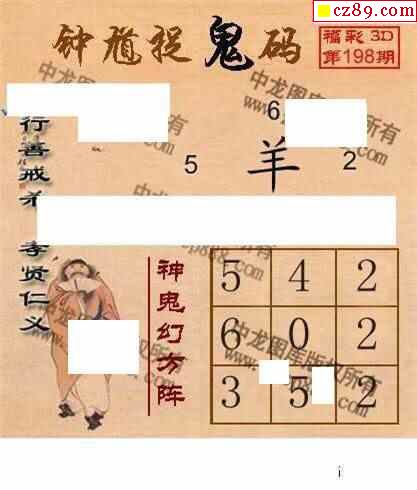 cz89.com
钟馗捉鬼码
福彩3D
第198期
行善戒杀 孝贤仁义
6
5 羊 2
神鬼幻方阵
5 4 2
6 0 2
3 5 2
中龙图库版权所有
i